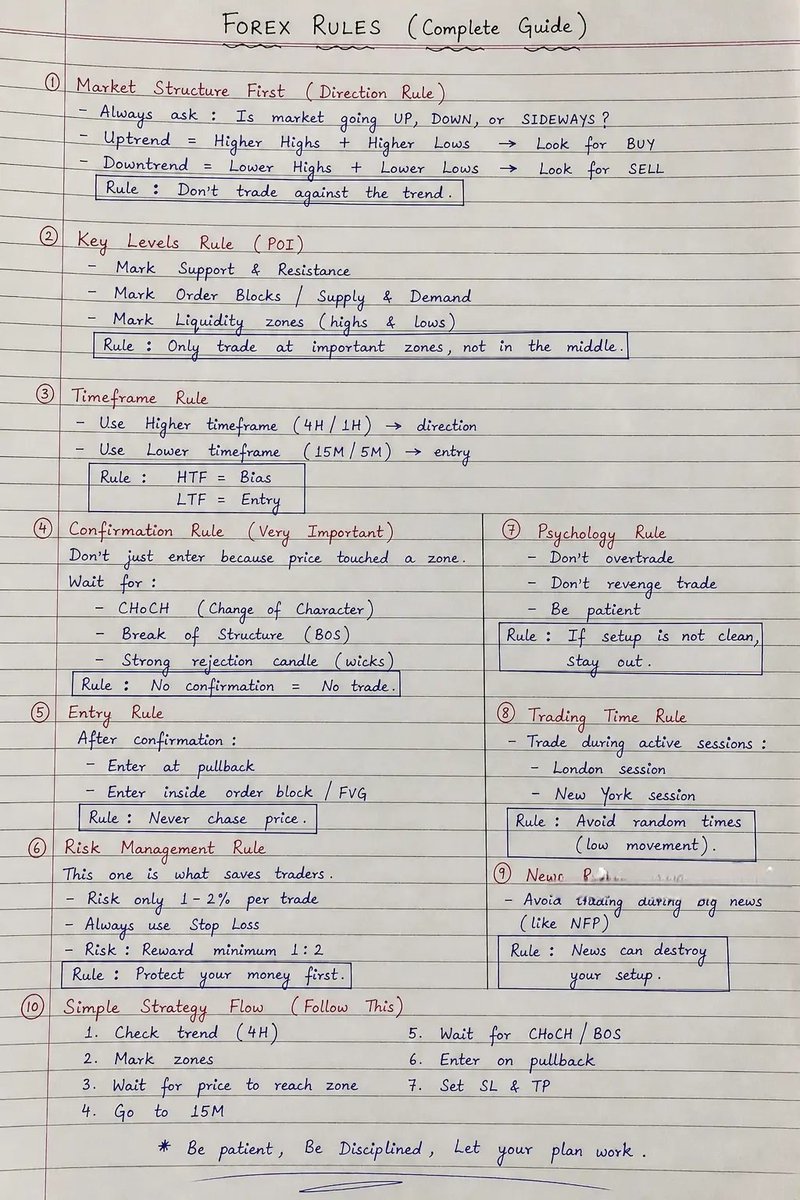 FOREX RULES (Complete Guide)
① Market Structure First (Direction Rule)
- Always ask : Is market going UP, DOWN, or SIDEWAYS ?
- Uptrend = Higher Highs + Higher Lows → Look for BUY
- Downtrend = Lower Highs + Lower Lows → Look for SELL
Rule : Don't trade against the trend.
② Key Levels Rule (POI)
- Mark Support & Resistance
- Mark Order Blocks / Supply & Demand
- Mark Liquidity zones (highs & lows)
Rule : Only trade at important zones, not in the middle.
③ Timeframe Rule
- Use Higher timeframe (4H / 1H) → direction
- Use Lower timeframe (15M / 5M) → entry
Rule : HTF = Bias
LTF = Entry
④ Confirmation Rule (Very Important)
Don't just enter because price touched a zone.
Wait for :
- CHoCH (Change of Character)
- Break of Structure (BOS)
- Strong rejection candle (wicks)
Rule : No confirmation = No trade.
⑤ Entry Rule
After confirmation :
- Enter at pullback
- Enter inside order block / FVG
Rule : Never chase price.
⑥ Risk Management Rule
This one is what saves traders.
- Risk only 1-2% per trade
- Always use Stop Loss
- Risk : Reward minimum 1:2
Rule : Protect your money first.
⑦ Psychology Rule
- Don't overtrade
- Don't revenge trade
- Be patient
Rule : If setup is not clean,
stay out.
⑧ Trading Time Rule
- Trade during active sessions :
- London session
- New York session
Rule : Avoid random times
(low movement).
⑨
- Avoid trading during big news
(like NFP)
Rule : News can destroy
your setup.
⑩ Simple Strategy Flow (Follow This)
1. Check trend (4H)
2. Mark zones
3. Wait for price to reach zone
4. Go to 15M
5. Wait for CHoCH / BOS
6. Enter on pullback
7. Set SL & TP
* Be patient, Be Disciplined, Let your plan work.